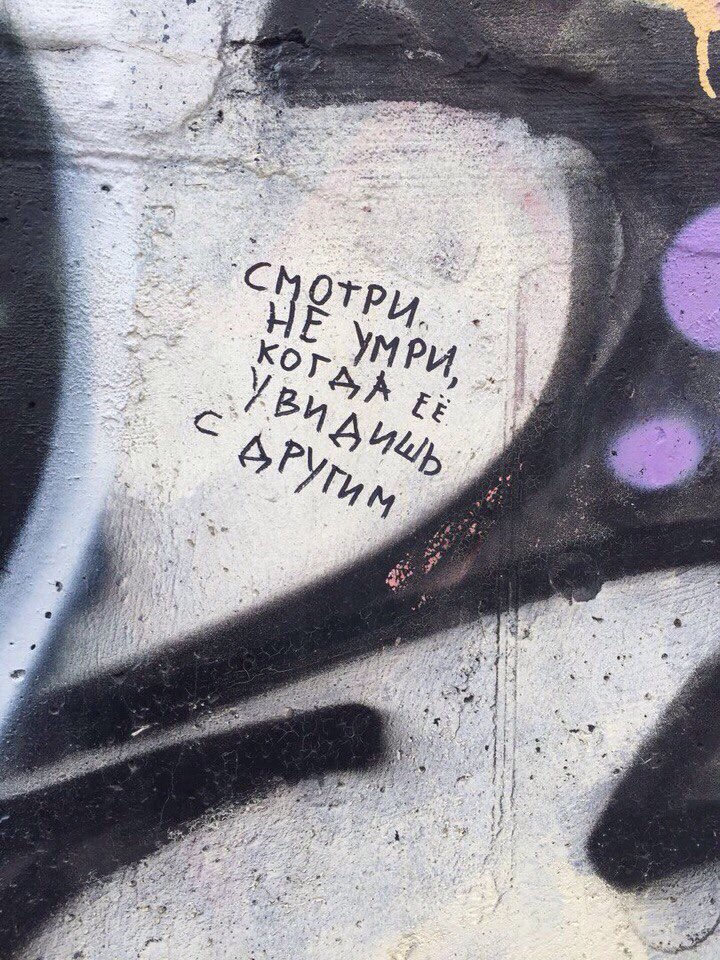 СМОТРИ
НЕ УМРИ,
КОГДА ЕЁ
УВИДИШЬ
С ДРУГИМ